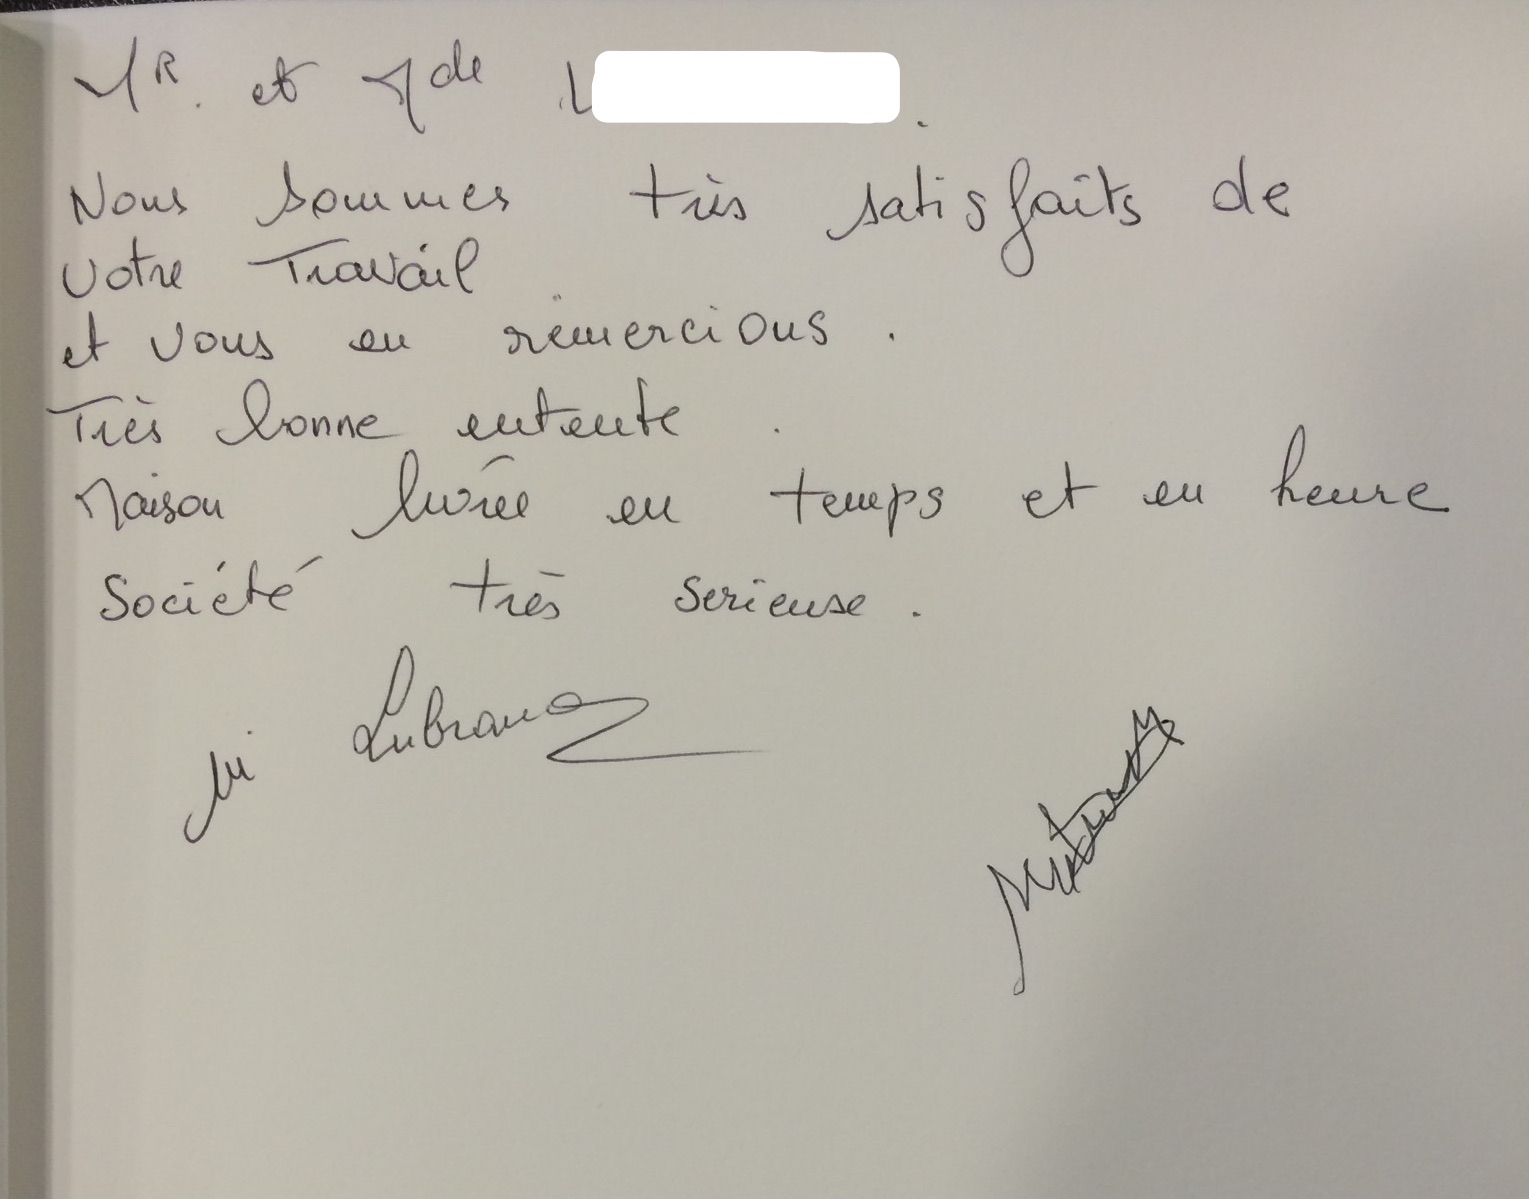 Mr. et Mde L
Nous sommes très satisfaits de
votre Travail
et vous en remercions.
Très bonne entente.
Maison livrée en temps et en heure
Société très serieuse.